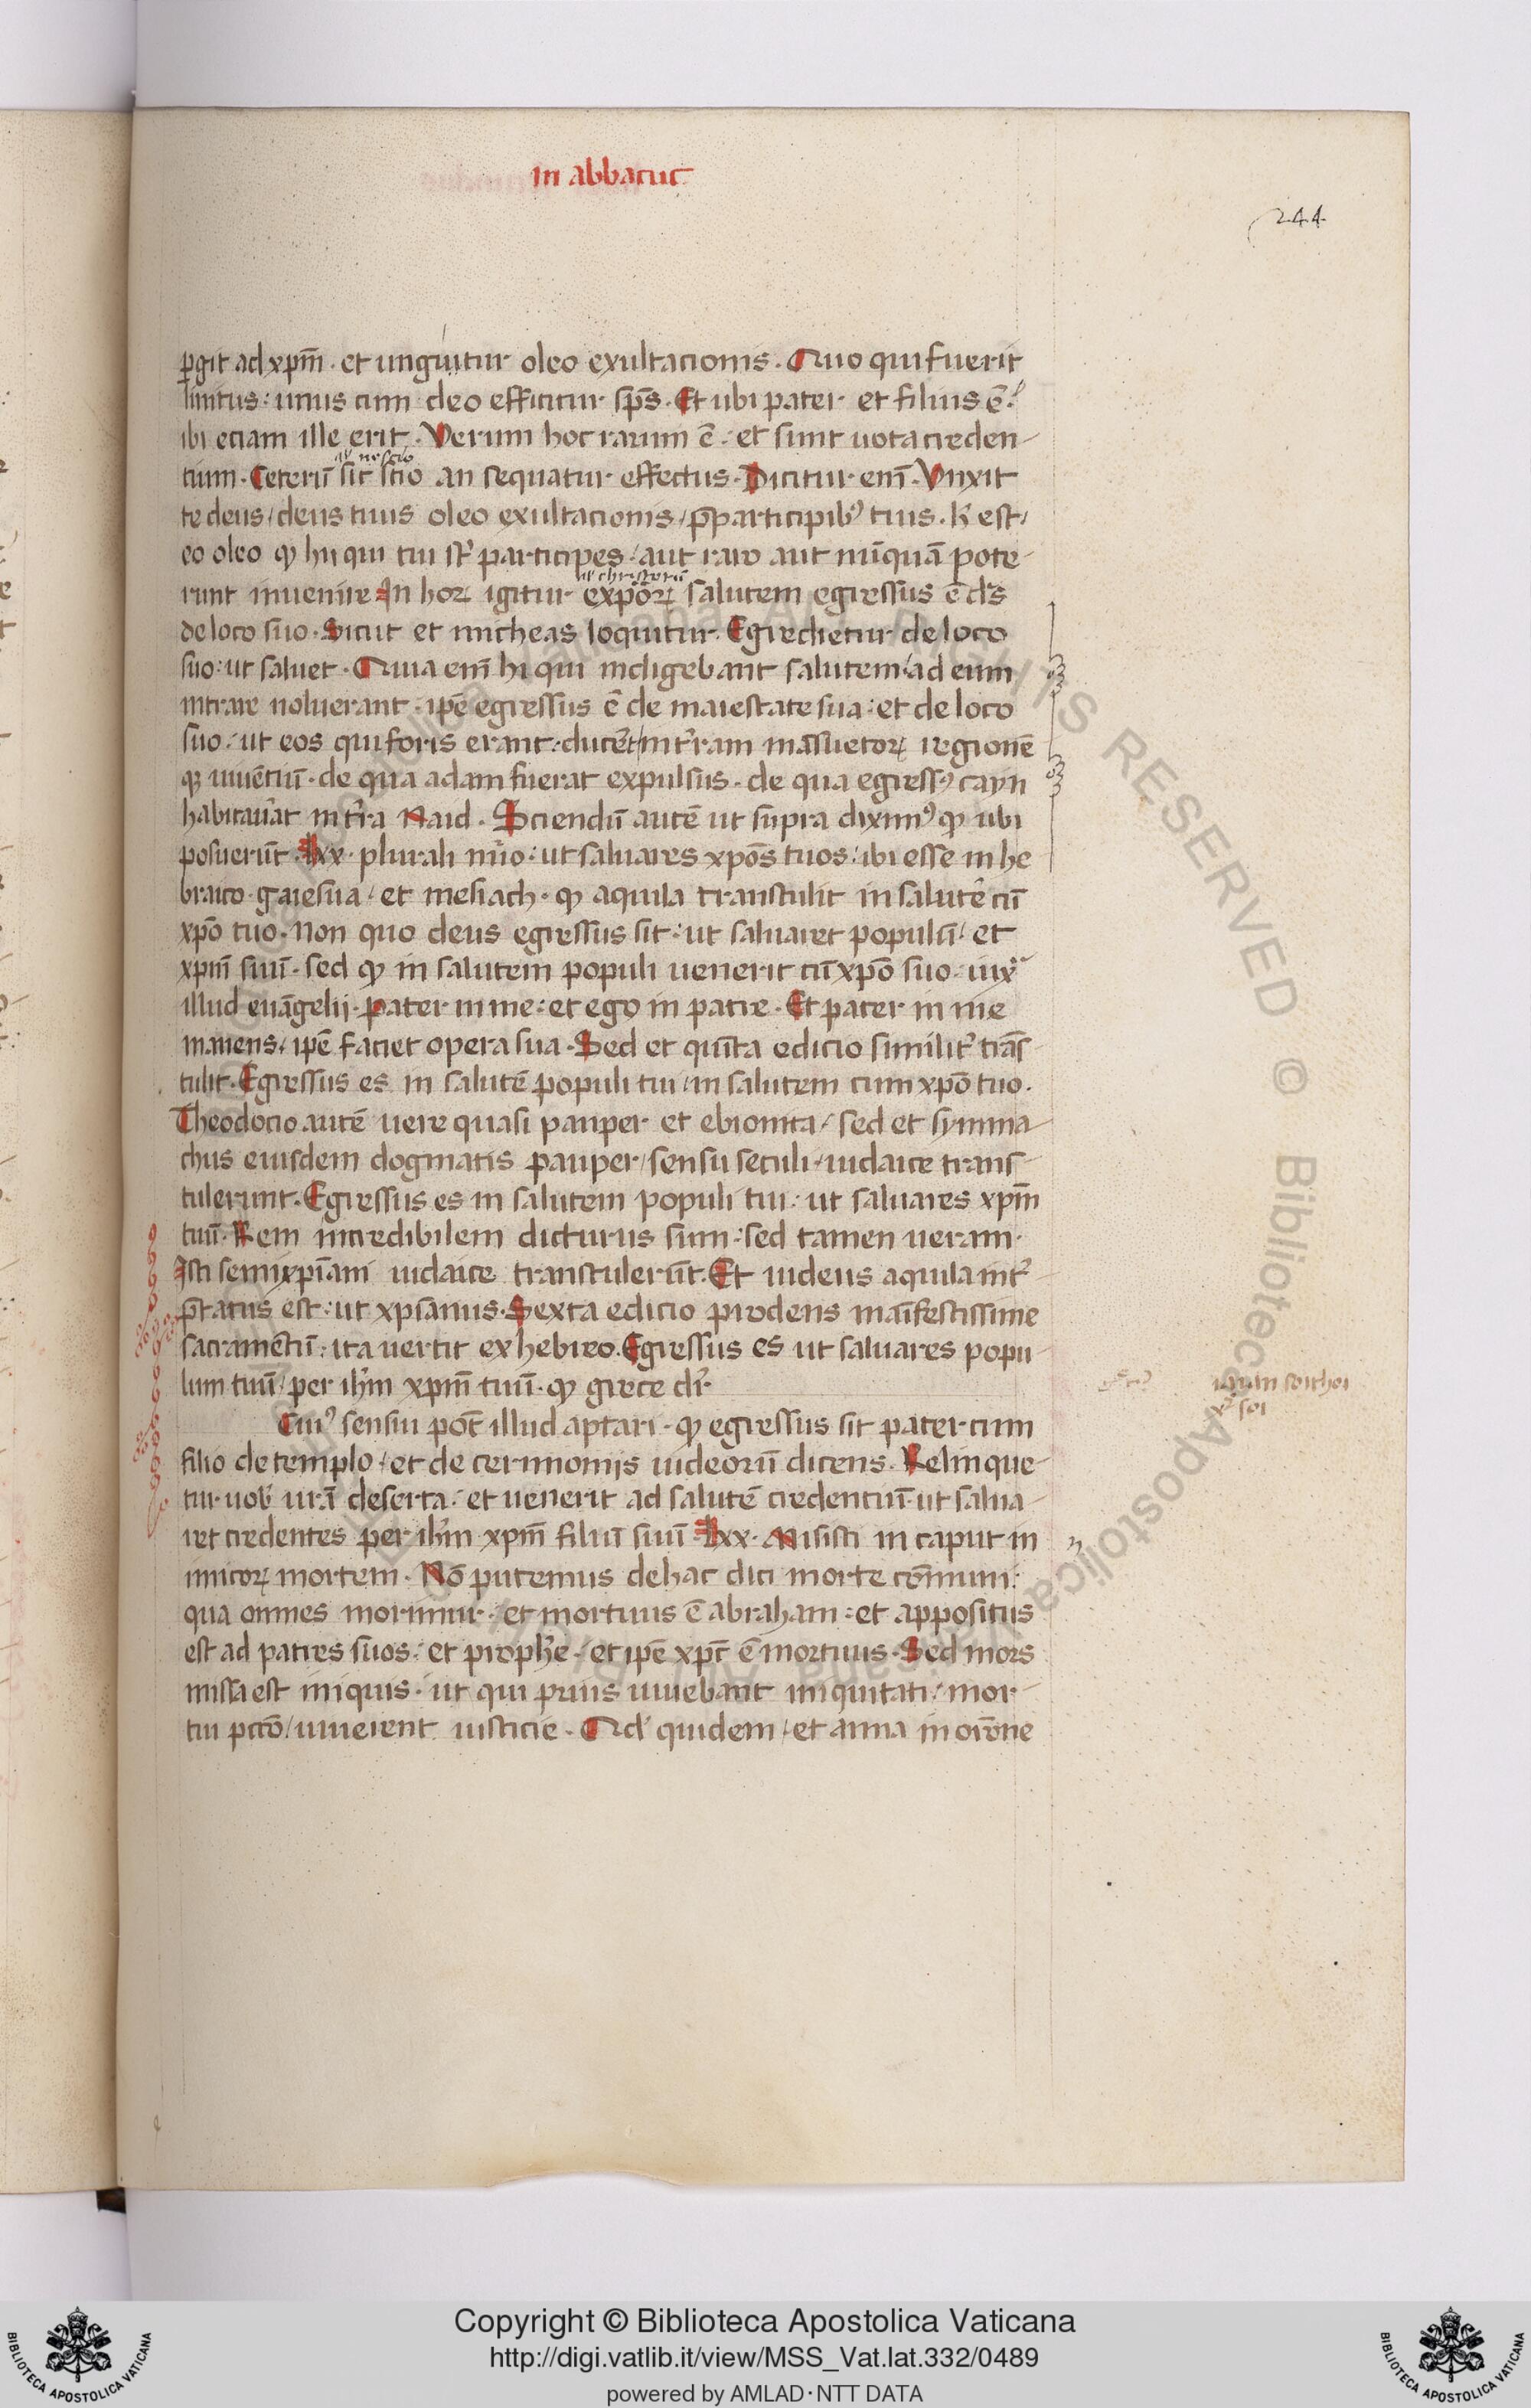 in abbacuc
244
ꝑgit ad xp̄m . et unguitur oleo exultacionis . Quo qui fuerit
linitus : unus cum deo efficitur sp̄s . Et ubi pater et filius ē :
ibi eciam ille erit . Verum hoc rarum ē : et sunt uota creden
al' nescio
cium . Ceterū sic scio an sequatur effectus . Dicitur em̄ . Vnxit
te deus / deus tuus oleo exultacionis / p̄ participib⁹ tuis . Id est /
eo oleo ꝙ hii qui tui st̄ participes / aut raro aut nūquā pote
al' christorū
runt inuenire In hoꝝ igitur expōꝝ salutem egressus ē ds̄
de loco suo . Sicut et micheas loquitur . Egredietur de loco
suo : ut saluet . Quia em̄ hi qui indigebant salutem / ad eum
intrare noluerant . ip̄e egressus ē de maiestate sua : et de loco
suo : ut eos qui foris erant : ducēt / in t̄ram māsuetoꝝ regionē
qꝫ uiuēciū . de qua adam fuerat expulsus . de qua egress⁹ cayn
habitau̾at in t̾ra Naid . Sciendū autē ut supra diximꝰ ꝙ ubi
posuerūt . lxx . plurali nūo : ut saluares xpōs tuos : ibi esse in he
braico . gaiesua / et mesiach . ꝙ aquila transtulit in salutē cū
xpō tuo . non quo deus egressus sit : ut saluaret populū / et
xpm̄ suū . sed ꝙ in salutem populi uenerit cū xpō suo . iuxᵃ
illud euāgelij . pater in me : et ego in patre . Et pater in me
manens / ip̄e faciet opera sua . Sed et quīta edicio similit̾ trās
tulit . Egressus es in salutē populi tui / in salutem cum xpō tuo .
Theodocio autē uere quasi pauper et ebionita / sed et symma
chus eiusdem dogmatis pauper / sensu seculi / iudaice trans
tulerunt . Egressus es in salutem populi tui : ut saluares xpm̄
tuū . Rem incredibilem dicturus sum : sed tamen ueram .
Isti semixpīani iudaice transtulerūt . Et iudeus aquila int̾
p̄tatus est : ut xpianus . Sexta edicio prodens maīfestissime
sacramētū : ita uertit ex hebreo . Egressus es ut saluares popu
lum tuū / per ih̄m xpm̄ tuū . ꝙ grece dr̄ .
Cui⁹ sensui pōt illud aptari . ꝙ egressus sit pater cum
filio de templo / et de cerimonijs iudeorū dicens . Relinque
tur uob̾ ur̄a deserta : et uenerit ad salutē credentiū . ut salua
ret credentes per ih̄m xpm̄ filiū suū lxx . Misisti in caput in
imicoꝝ mortem . Nō putemus de hac dici morte cōmuni :
qua omnes morimur . et mortuus ē abraham : et appositus
est ad patres suos : et prophē . et ip̄e xpc̄ ē mortuus . Sed mors
missa est iniquis . ut qui prius uiuebant iniquitati / mor
tui pctō / uiuerent iusticie . Qd' quidem / et anna in orōne
Copyright © Biblioteca Apostolica Vaticana
http://digi.vatlib.it/view/MSS_Vat.lat.332/0489
powered by AMLAD·NTT DATA
BIBLIOTECA APOSTOLICA VATICANA
BIBLIOTECA APOSTOLICA VATICANA